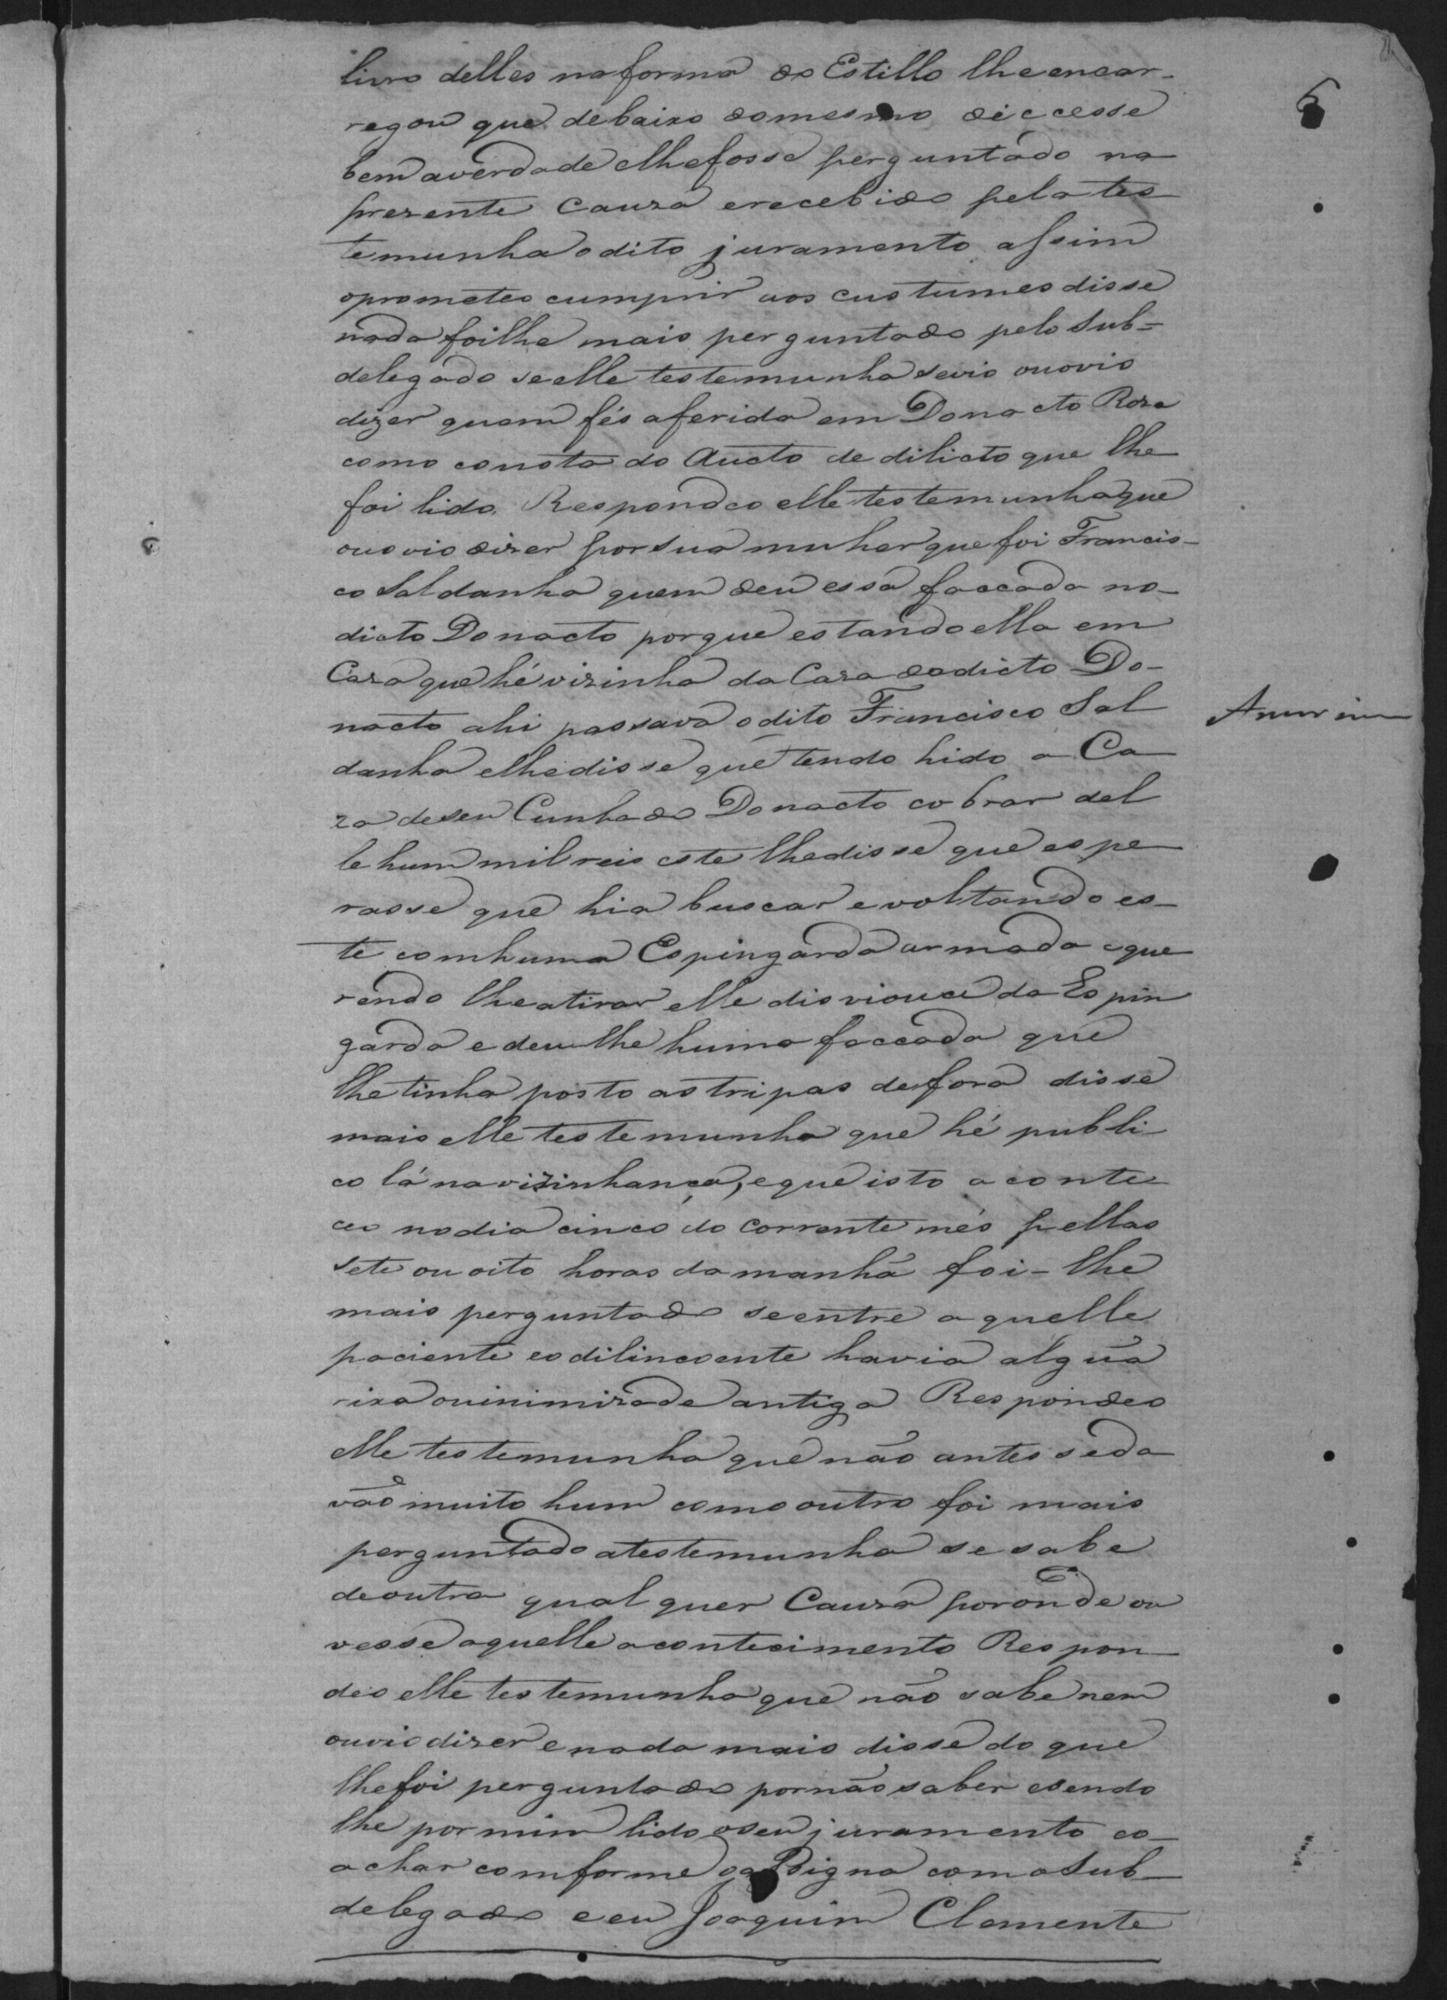 6
livro delles na forma do Estillo lhe encar-
regou que debaixo do mesmo diccesse
bem averdade elhefosse perguntado na
prezente Cauza erecebido pela tes
temunha odito juramento assim
oprometeo cumprir aos custumes disse
nada foilhe mais perguntado pelo Sub=
delegado seelle testemunha sevio ouovio
dizer quem fés aferida em Donacto Roza
como consta do Aucto de dilicto que lhe
foi lido. Respondeo elle testemunha que
ouovio dizer porsua muher que foi Francis-
co Saldanha quem deu essa faccada no
dicto Donacto porque estando ella em
Caza que hé vizinha da Caza do dicto Do-
nacto ahi passava odito Francisco Sal
danha elhedisse que tendo hido a Ca
za deseu Cunhado Donacto cobrar del
le hum mil reis este lhedisse que espe
rasse que hia buscar evoltando es-
te comhuma Espingarda armada eque
rendo lheatirar elle disviouce da Espin
garda edeulhe huma faccada que
lhetinha posto astripas defora disse
mais elle testemunha que hé publi
co lá navizinhança, eque isto aconte
ceo nodia cinco do corrente més pellas
sete ou oito horas damanhã foi-lhe
mais perguntado seentre aquelle
paciente eodilincoente havia algũa
rixa ouinimizade antiga Respondeo
elle testemunha que não antes seda
vão muito hum comooutro foi mais
perguntado atestemunha se sabe
deoutra qualquer Cauza poronde ou
vesse aquelle acontecimento Respon
deo elle testemunha que não sabe nem
ouvio dizer enada mais disse do que
lhefoi perguntado pornão saber esendo
lhe pormim lido oseu juramento eo
achar comforme oassigna com oSub
delegado eeu Joaquim Clemente